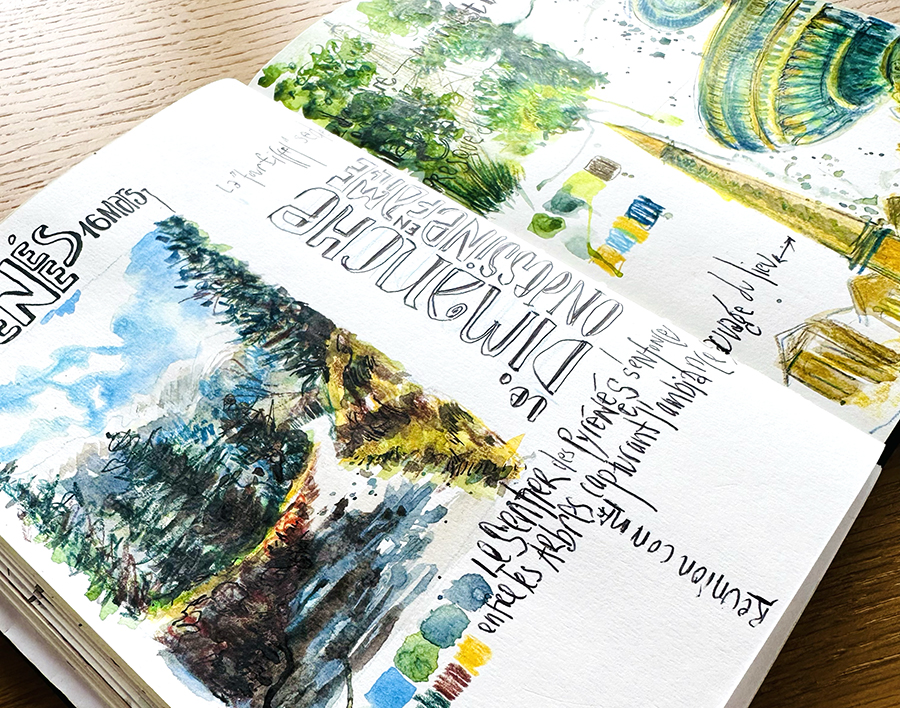 NÉES
16 MARS
Le DIMANCHE
ON DESSINE EN FAMILLE
Le Sentier des Pyrénées s'enfonce
entre les ARBRES capturant l'ambiance
du lieu
Réunion com